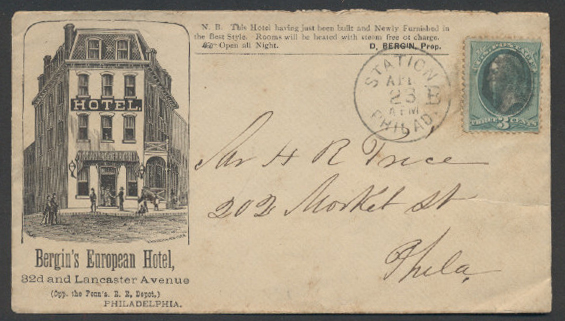 N. B. This Hotel having just been built and Newly Furnished in
the Best Style. Rooms will be heated with steam free of charge.
Open all Night. D, BERGIN, Prop.
HOTEL.
STATION B
APR
23
PHILAD.
THREE 3 CENTS
Mr H R Price
202 Market St
Phila.
Bergin's European Hotel,
32d and Lancaster Avenue
(Opp. the Penn'a. R. R. Depot,)
PHILADELPHIA.